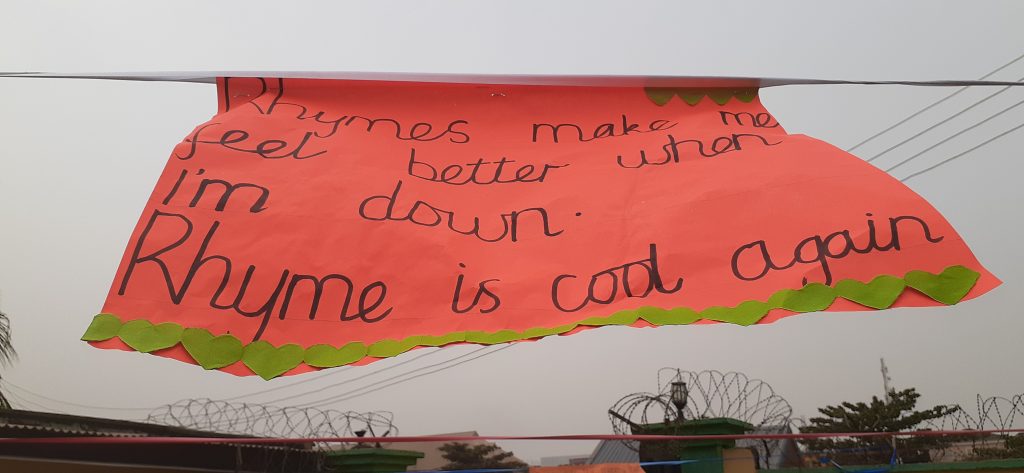 Rhymes make me
feel better when
I'm down.
Rhyme is cool again